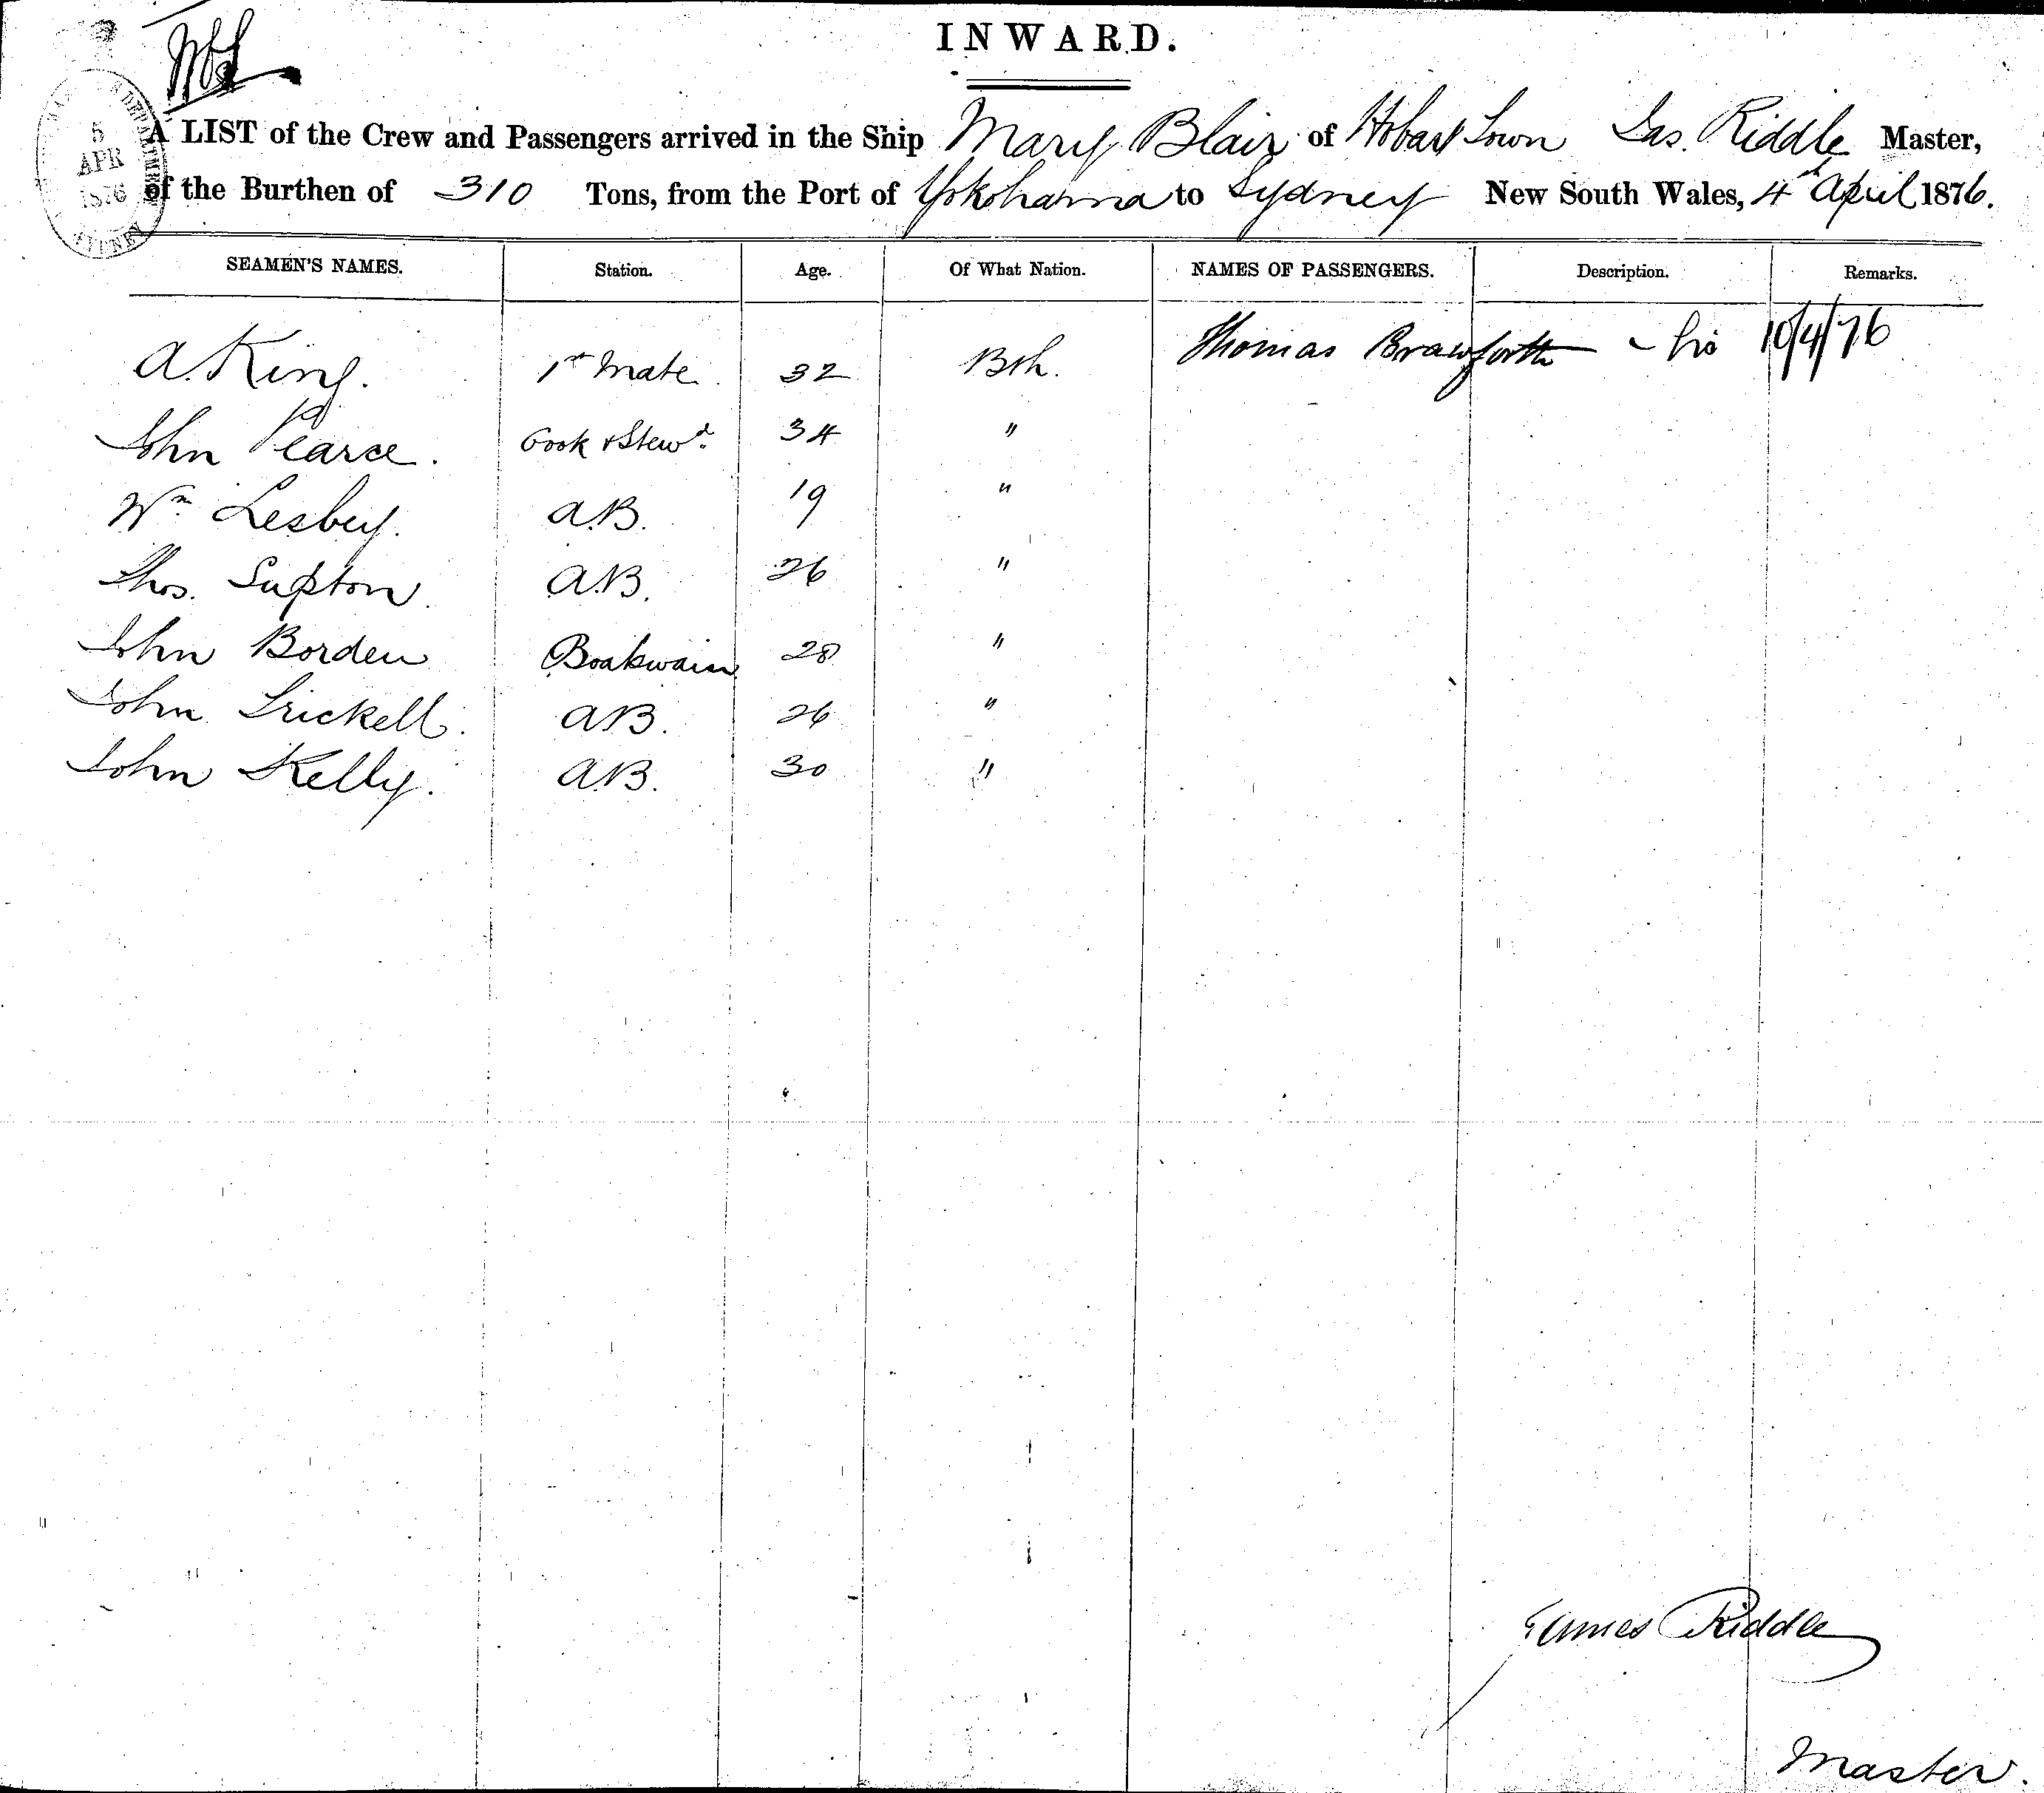 INWARD.
A LIST of the Crew and Passengers arrived in the Ship Mary Blair of Hobart Town Jas. Riddle Master,
of the Burthen of 310 Tons, from the Port of Yokohama to Sydney New South Wales, 4th April 1876.
5
APR
1876
SYDNEY
SEAMEN'S NAMES. Station. Age. Of What Nation. NAMES OF PASSENGERS. Description. Remarks.
A. King. 1st Mate 32 Bth. Thomas 10/4/76
John Pearce. Cook & Stewd. 34 "
Wm Lesbey. A.B. 19 "
Thos. Lupton. A.B. 26 "
John Borden Boatswain 28 "
John Trickell. A.B. 26 "
John Kelly. A.B. 30 "
James Riddle
Master.